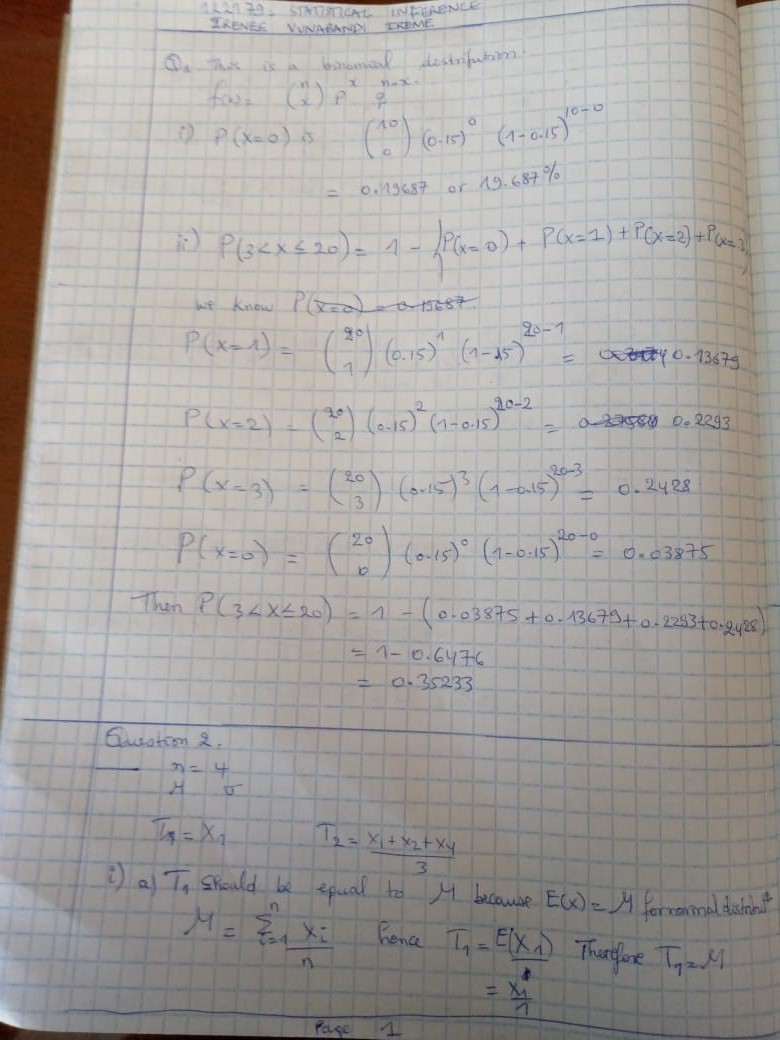 STATISTICAL INFERENCE
IRENEE VUNABANDI IREME
Q1. This is a binomial distribution.
f(x)= (n x) p^x q^n-x
i) P(x=0) is (10 0) (0.15)^0 (1-0.15)^10-0
= 0.19687 or 19.687%
ii) P(3<x≤20) = 1 - {P(x=0) + P(x=1) + P(x=2) + P(x=3
we know P(x=0) = 0.19687
P(x=1) = (20 1) (0.15)^1 (1-.15)^20-1 = 0.13679
P(x=2) = (20 2) (0.15)^2 (1-0.15)^20-2 = 0.2293
P(x=3) = (20 3) (0.15)^3 (1-0.15)^20-3 = 0.2428
P(x=0) = (20 0) (0.15)^0 (1-0.15)^20-0 = 0.03875
Then P(3<x≤20) = 1 - (0.03875 + 0.13679 + 0.2293 + 0.2428)
= 1 - 0.6476
= 0.35233
Question 2.
n = 4
μ σ
T1 = X1 T2 = x1 + x2 + x4 / 3
i) a) T1 should be equal to μ because E(x) = μ for normal distribut
μ = Σ i=1 n xi / n hence T1 = E(X1) / 1 Therefore T1 = μ
= x1 / 1
Page 1